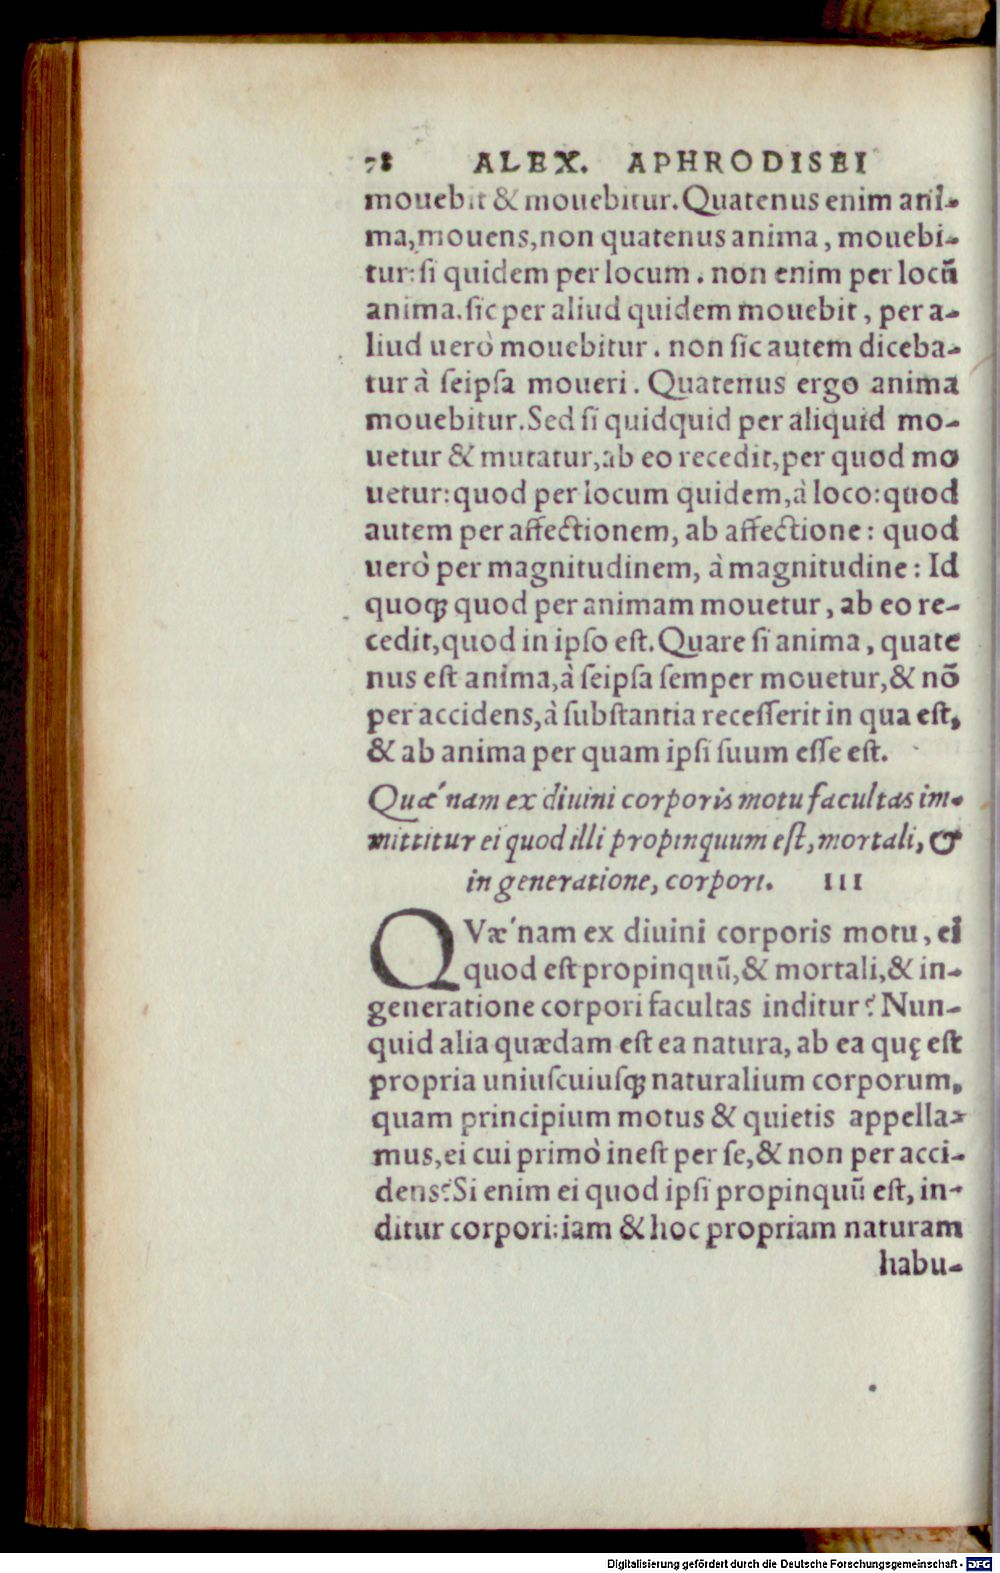 78 ALEX. APHRODISEI
mouebit & mouebitur. Quatenus enim ani-
ma, mouens, non quatenus anima, mouebi-
tur: si quidem per locum. non enim per locū
anima. sic per aliud quidem mouebit, per a-
liud uerò mouebitur. non sic autem diceba-
tur à seipsa moueri. Quatenus ergo anima
mouebitur. Sed si quidquid per aliquid mo-
uetur & mutatur, ab eo recedit, per quod mo
uetur: quod per locum quidem, à loco: quod
autem per affectionem, ab affectione: quod
uerò per magnitudinem, à magnitudine: Id
quoqꝫ quod per animam mouetur, ab eo re-
cedit, quod in ipso est. Quare si anima, quate
nus est anima, à seipsa semper mouetur, & nō
per accidens, à substantia recesserit in qua est,
& ab anima per quam ipsi suum esse est.
Quæ´nam ex diuini corporis motu facultas im-
mittitur ei quod illi propinquum est, mortali, &
in generatione, corpori. III
QVæ´nam ex diuini corporis motu, ei
quod est propinquū, & mortali, & in-
generatione corpori facultas inditur? Nun-
quid alia quædam est ea natura, ab ea quę est
propria uniuscuiusqꝫ naturalium corporum,
quam principium motus & quietis appella-
mus, ei cui primò inest per se, & non per acci-
dens? Si enim ei quod ipsi propinquū est, in-
ditur corpori: iam & hoc propriam naturam
habu-
Digitalisierung gefördert durch die Deutsche Forschungsgemeinschaft - DFG